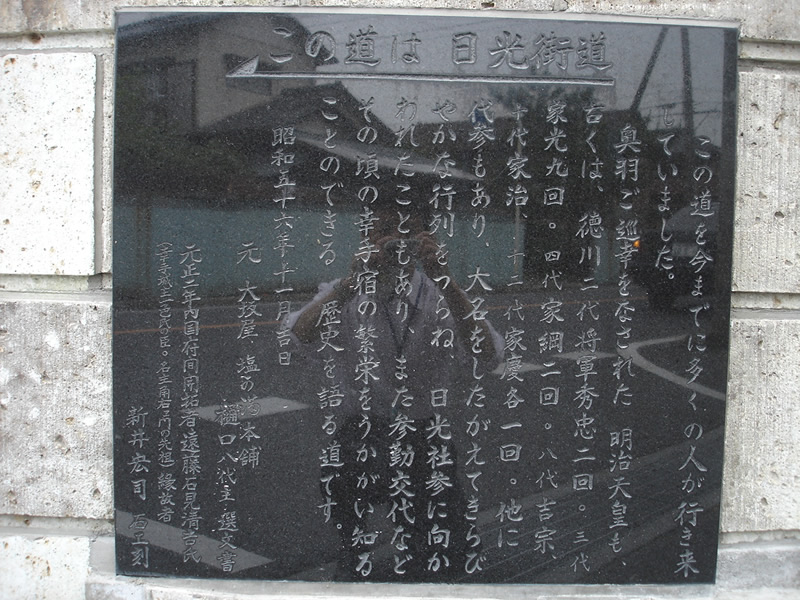 この道は 日光街道
この道を今までに多くの人が行き来
していました。
奥羽ご巡幸をなされた 明治天皇も、
古くは、徳川二代将軍秀忠二回。三代
家光九回。四代家綱二回。八代吉宗、
十代家治、十二代家慶各一回。他に
代参もあり、大名をしたがえてきらび
やかな行列をつらね、日光社参に向か
われたこともあり、また参勤交代など
その頃の幸手宿の繁栄をうかがい知る
ことのできる 歴史を語る道です。
昭和五十六年十一月吉日
元 大阪屋 塩の湯本舗
樋口八代主 撰文書
元正二年内国府間開拓者遠藤石見清吉氏
(幸手城主一色氏の臣。名主角右エ門の先祖)縁故者
新井宏司 石工刻